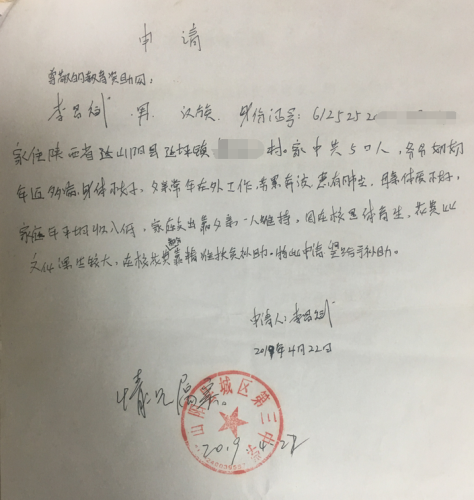 申请
尊敬的教育资助网：
李 男 汉族 身份证号：6125252
家住陕西省 山阳县 延坪镇 村。家中共5口人，爷爷奶奶
年近多病，身体不好，父亲常年在外工作， 患有肺尘，母亲体质不好，
家庭年平均收入低，家庭支出靠父亲一人维持，因在校是体育生，花费
文化课 较大，在校花费靠精准扶贫补助。特此申请望给予补助。
申请人：李
2019年4月22日
情况属实。
山阳 城区第三中学
2019.4.22